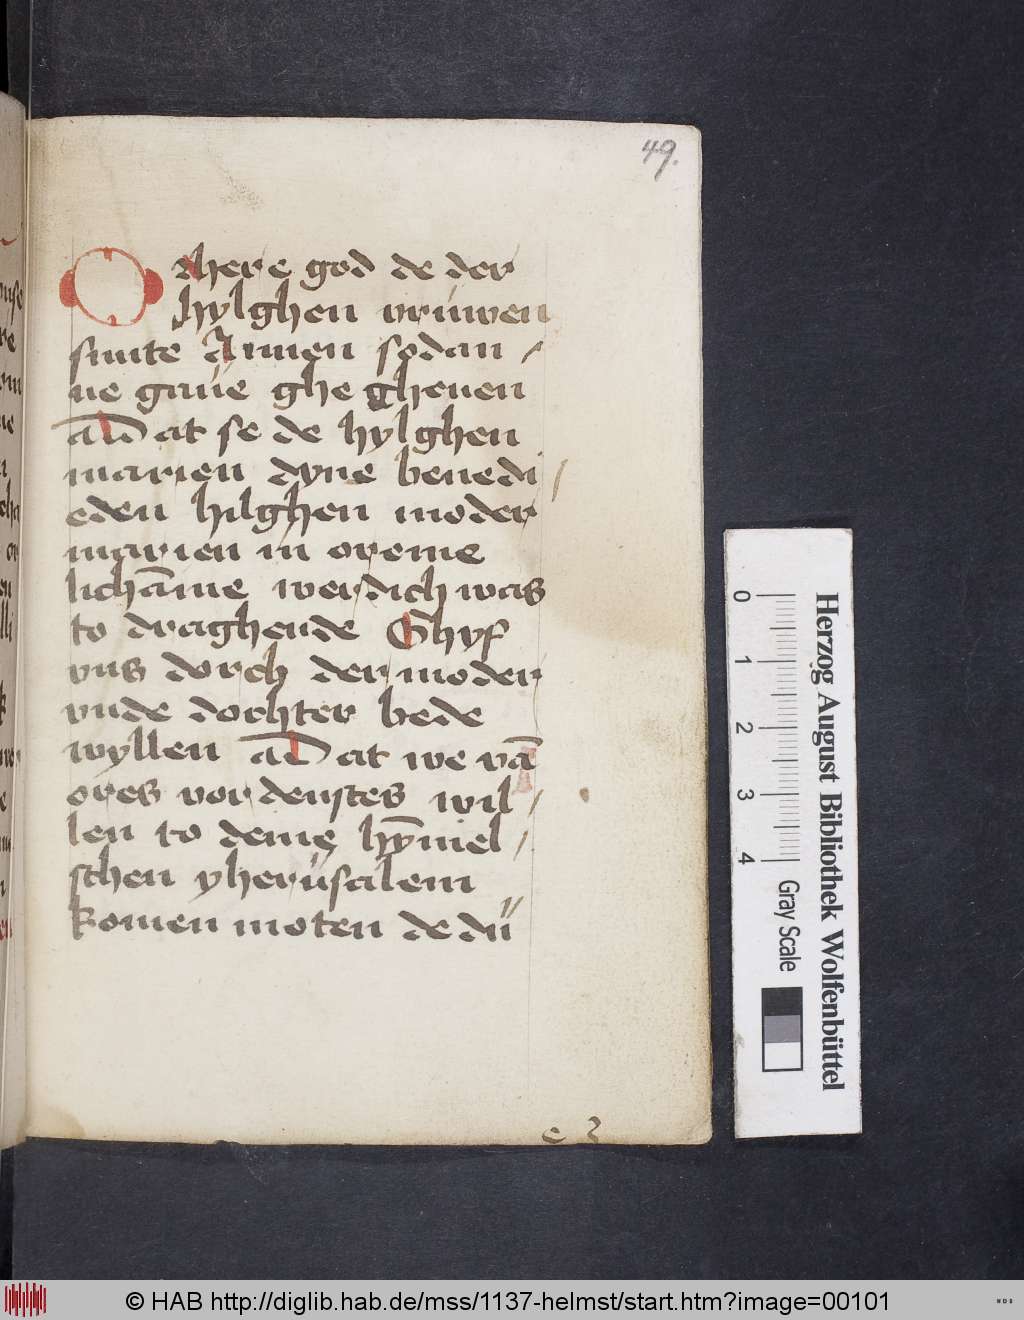 49.
O here god de der
hylghen vrůwen
sunte Annen sodan -
ne gaůe ghe gheuen
dat se de hylghen
marien dyne benedi /
eden hilghen moder
marien in oreme
lichāme werdich was
to draghende Ghyf
vns dorch der moder
vnde dochter bede
wyllen dat we vā
ores vordenstes wil /
len to deme hȳmel /
schen yherůsalem
komen moten de dü
e 3
Herzog August Bibliothek Wolfenbüttel
0 1 2 3 4
Gray Scale
© HAB http://diglib.hab.de/mss/1137-helmst/start.htm?image=00101